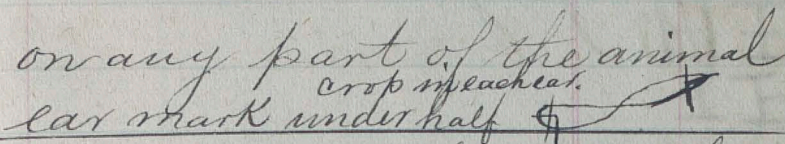 on any part of the animal
crop in each ear.
ear mark under half